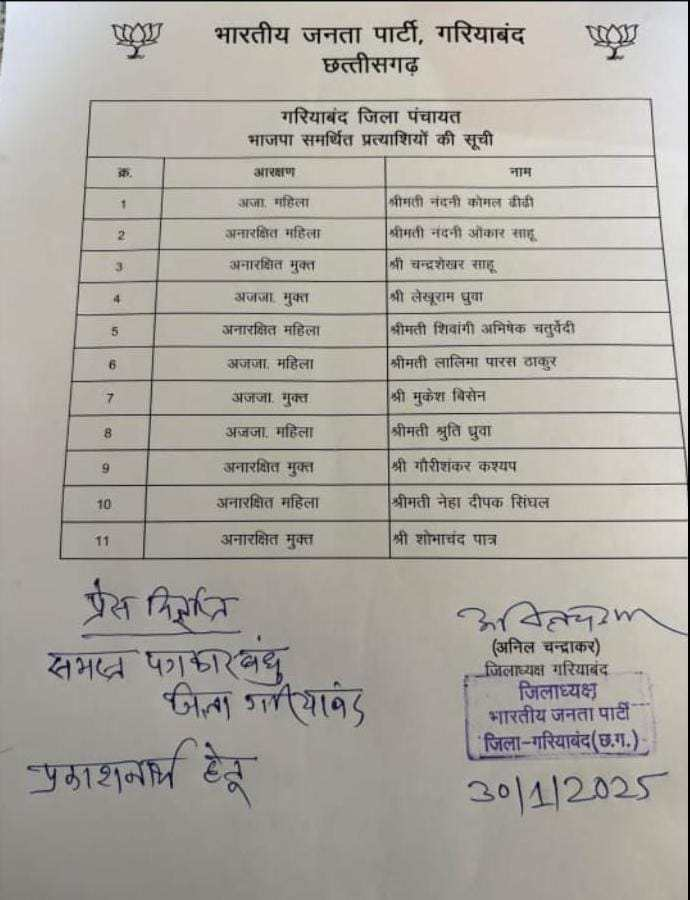 भारतीय जनता पार्टी, गरियाबंद
छत्तीसगढ़
गरियाबंद जिला पंचायत
भाजपा समर्थित प्रत्याशियों की सूची
क्र. आरक्षण नाम
1 अजा. महिला श्रीमती नंदनी कोमल ढीढी
2 अनारक्षित महिला श्रीमती नंदनी ओंकार साहू
3 अनारक्षित मुक्त श्री चन्द्रशेखर साहू
4 अजजा. मुक्त श्री लेखूराम ध्रुवा
5 अनारक्षित महिला श्रीमती शिवांगी अभिषेक चतुर्वेदी
6 अजजा. महिला श्रीमती लालिमा पारस ठाकुर
7 अजजा. मुक्त श्री मुकेश बिसेन
8 अजजा. महिला श्रीमती श्रुति ध्रुवा
9 अनारक्षित मुक्त श्री गौरीशंकर कश्यप
10 अनारक्षित महिला श्रीमती नेहा दीपक सिंघल
11 अनारक्षित मुक्त श्री शोभाचंद पात्र
प्रेस विज्ञप्ति
समस्त पत्रकार बंधु
जिला गरियाबंद
प्रकाशनार्थ हेतू
(अनिल चन्द्राकर)
जिलाध्यक्ष गरियाबंद
जिलाध्यक्ष
भारतीय जनता पार्टी
जिला-गरियाबंद(छ.ग.)
30/1/2025